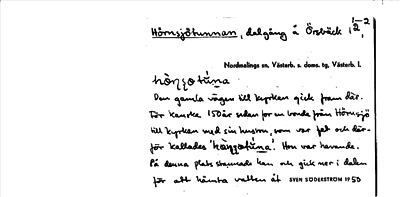 Hörnsjötunnan, dalgång å Örsbäck 1 1/2 - 2
Nordmalings sn, Västerb. s. doms. tg, Västerb. l.
Den gamla vägen till kyrkan gick fram där.
För kanske 150 år sedan for en bonde från Hörnsjö
till kyrkan med sin hustru, som var fet och där-
för kallades . Hon var havande.
På denna plats stannade han och gick ner i dalen
för att hämta vatten åt SVEN SÖDERSTRÖM 1950